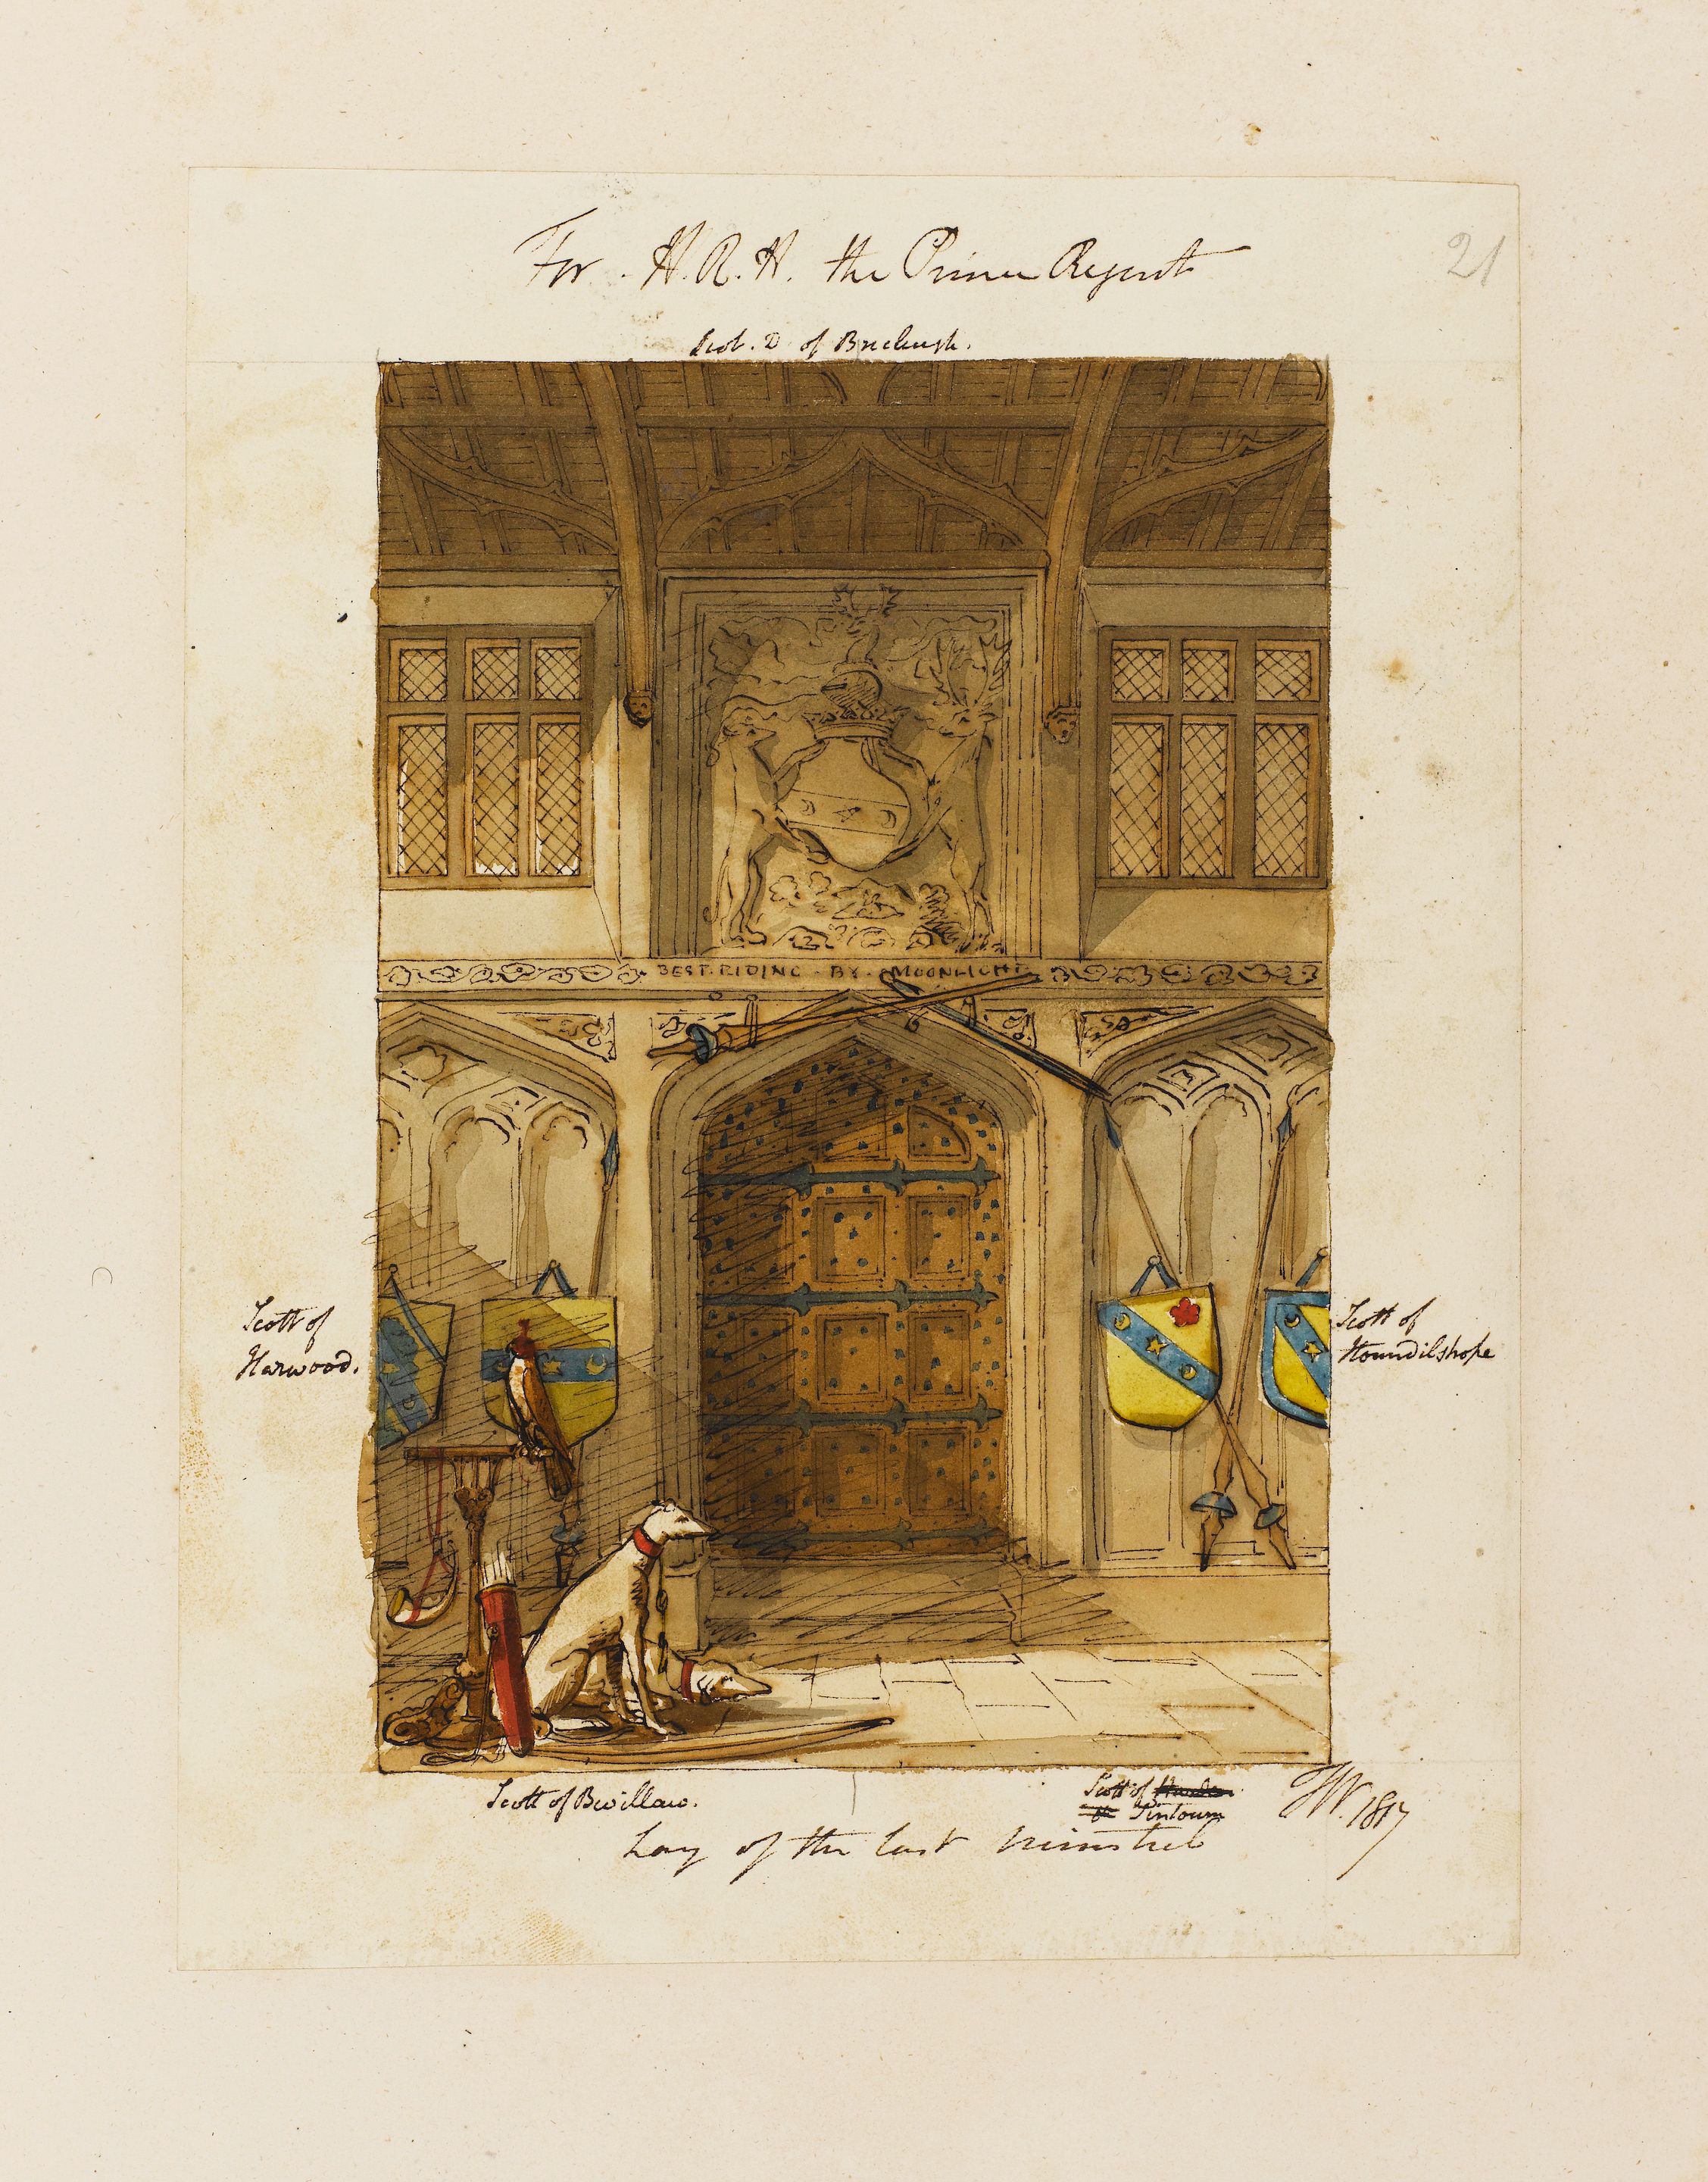 For. H.R.H. the Prince Regent
21
Scot. D of Buccleugh.
BEST. RIDING. BY. MOONLIGHT
Scott of
Harwood.
Scott of
Houndilshope
Scott of
Scott of
Sintoum
JW. 1817
Lay of the last minstrel